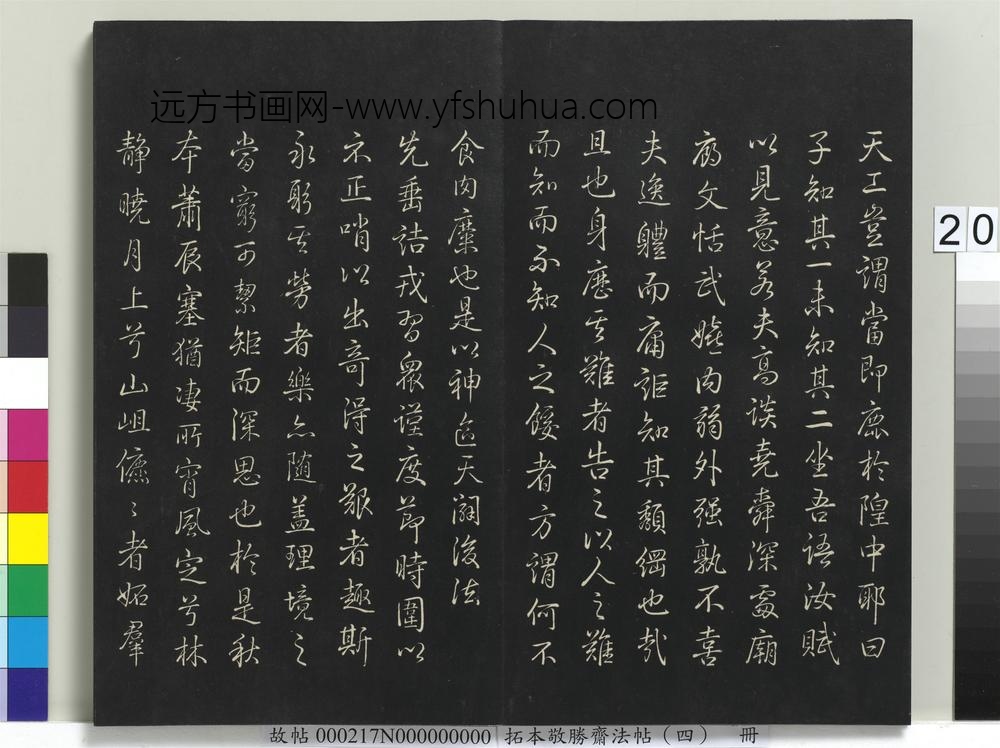 远方书画网-www.yfshuhua.com
天工豈謂當即鹿於隍中耶曰
子知其一未知其二坐吾語汝賦
以見意若夫高談堯舜深處廟
廊文恬武嬉內弱外强孰不喜
夫逸體而庸詎知其頽綱也哉
且也身歷其難者告之以人之難
而知而不知人之餒者方謂何不
食肉糜也是以神迄天溯後法
先垂詰戎習衆謹度節時圍以
不正哨以出奇得之艱者趣斯
永躬其勞者樂亦随蓋理境之
當窮可絜矩而深思也於是秋
本蕭辰塞猶凄所宵風定兮林
静曉月上兮山岨儦々者妬羣
20
故帖 000217N000000000 拓本敬勝齋法帖（四） 冊